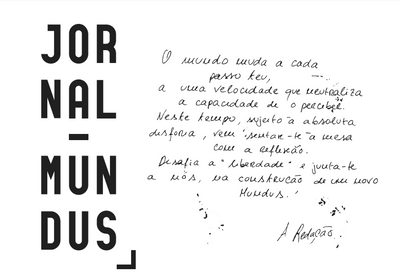 JOR
NAL
-
MUN
DUS
O mundo muda a cada
passo teu,
a uma velocidade que neutraliza
a capacidade de o perceber.
Neste tempo, sujeito à absoluta
disforia, vem "sentar-te" à mesa
com a reflexão.
Desafia a "liberdade" e junta-te
a nós, na construção de um novo
Mundus.
A Redação